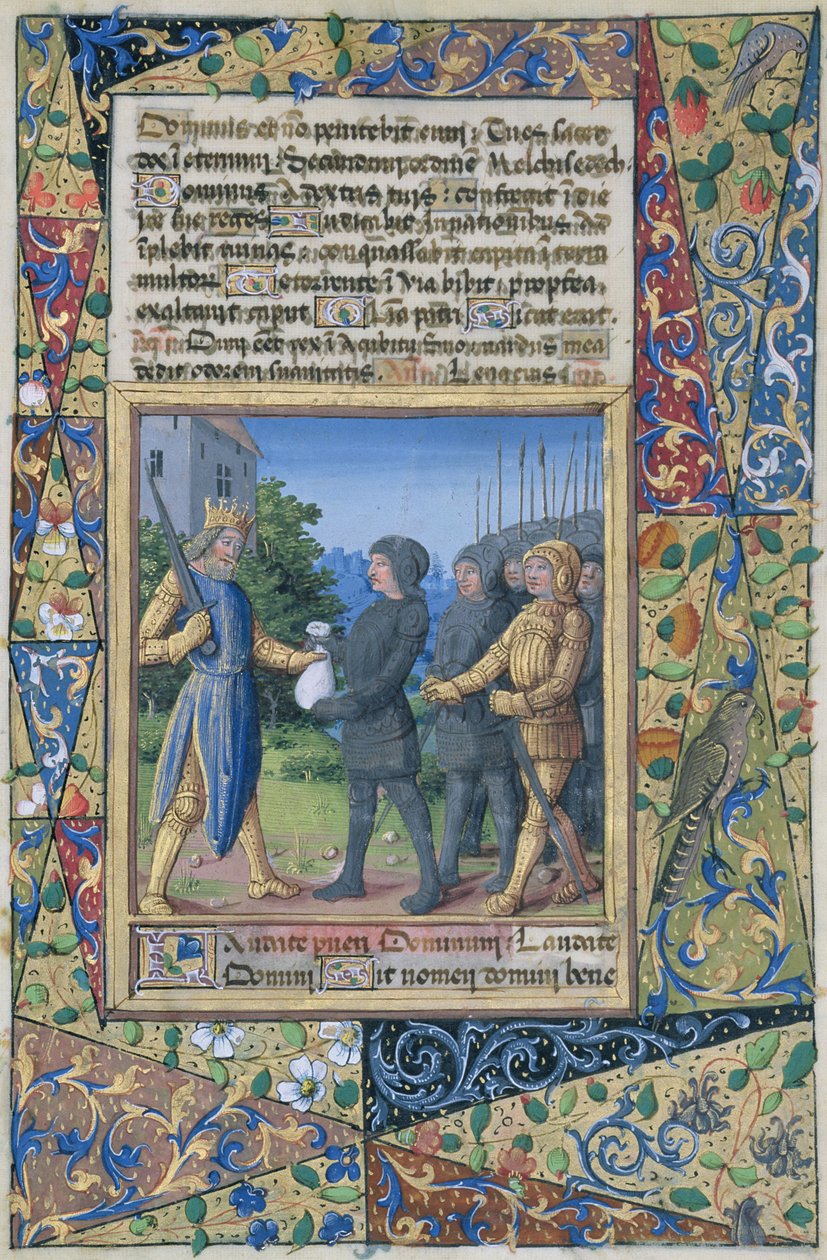 Dominus et nō penitebit eum : Tu es sacer
dos ī eternum : Secundum ordinē Melchisedech.
Dominus A dextris tuis : confregit ī die
ire sue reges Iudicabit In nationibus
īplebit ruinas : conquassabit capita ī terra
multor De torrente ī via bibit : proptea
exaltavit caput Glīa patri Sicut erat.
Dum eēt rex ī Acubitu suo nardus mea
dedit odorem suavitatis.
Laudate pueri Dominum : Laudate
Domini Sit nomen domini bene